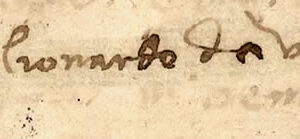 lionardo da v